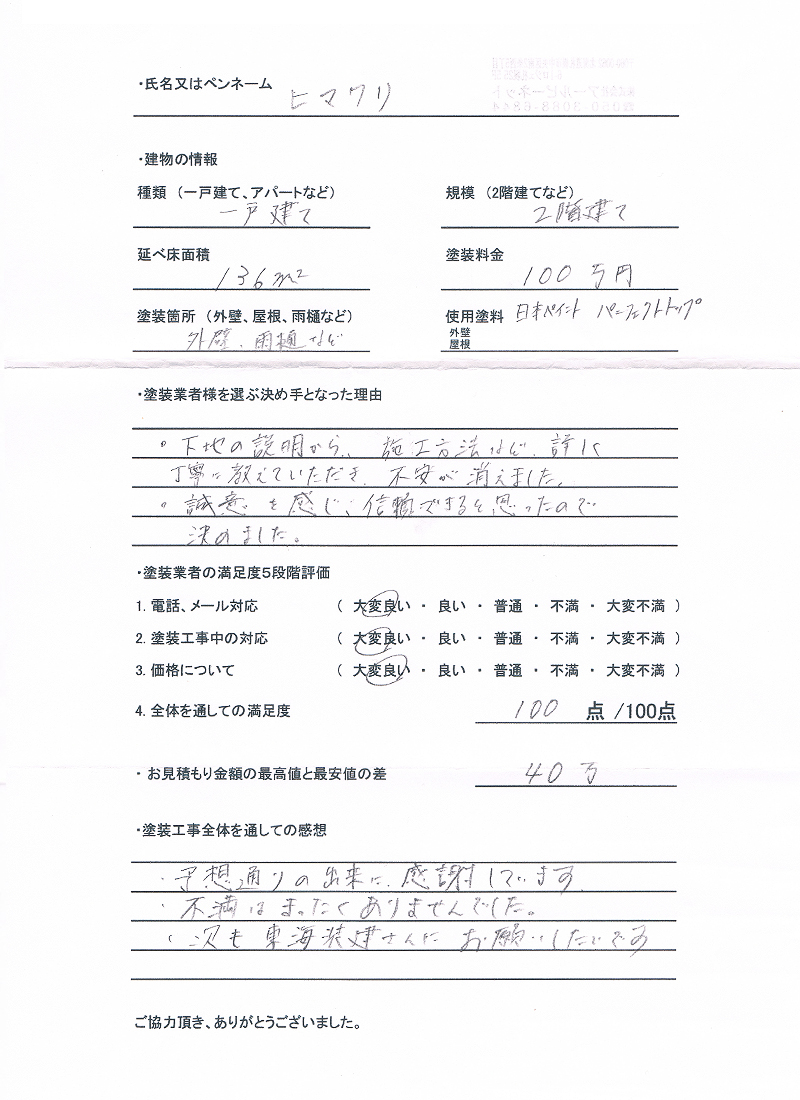 ・氏名又はペンネーム ヒマワリ
・建物の情報
種類 (一戸建て、アパートなど) 規模 (2階建てなど)
一戸建て 2階建て
延べ床面積 塗装料金
136m² 100万円
塗装箇所 (外壁、屋根、雨樋など) 使用塗料 日本ペイント パーフェクトトップ
外壁、雨樋など 外壁
屋根
・塗装業者様を選ぶ決め手となった理由
。下地の説明から、施工方法など、詳しく
丁寧に教えていただき、不安が消えました。
。誠意を感じ、信頼できると思ったので
決めました。
・塗装業者の満足度5段階評価
1. 電話、メール対応 ( 大変良い ・ 良い ・ 普通 ・ 不満 ・ 大変不満 )
2. 塗装工事中の対応 ( 大変良い ・ 良い ・ 普通 ・ 不満 ・ 大変不満 )
3. 価格について ( 大変良い ・ 良い ・ 普通 ・ 不満 ・ 大変不満 )
4. 全体を通しての満足度 100 点 /100点
・ お見積もり金額の最高値と最安値の差 40万
・塗装工事全体を通しての感想
・予想通りの出来に、感謝しています
・不満はまったくありませんでした。
・次も東海装建さんにお願いしたいです
ご協力頂き、ありがとうございました。